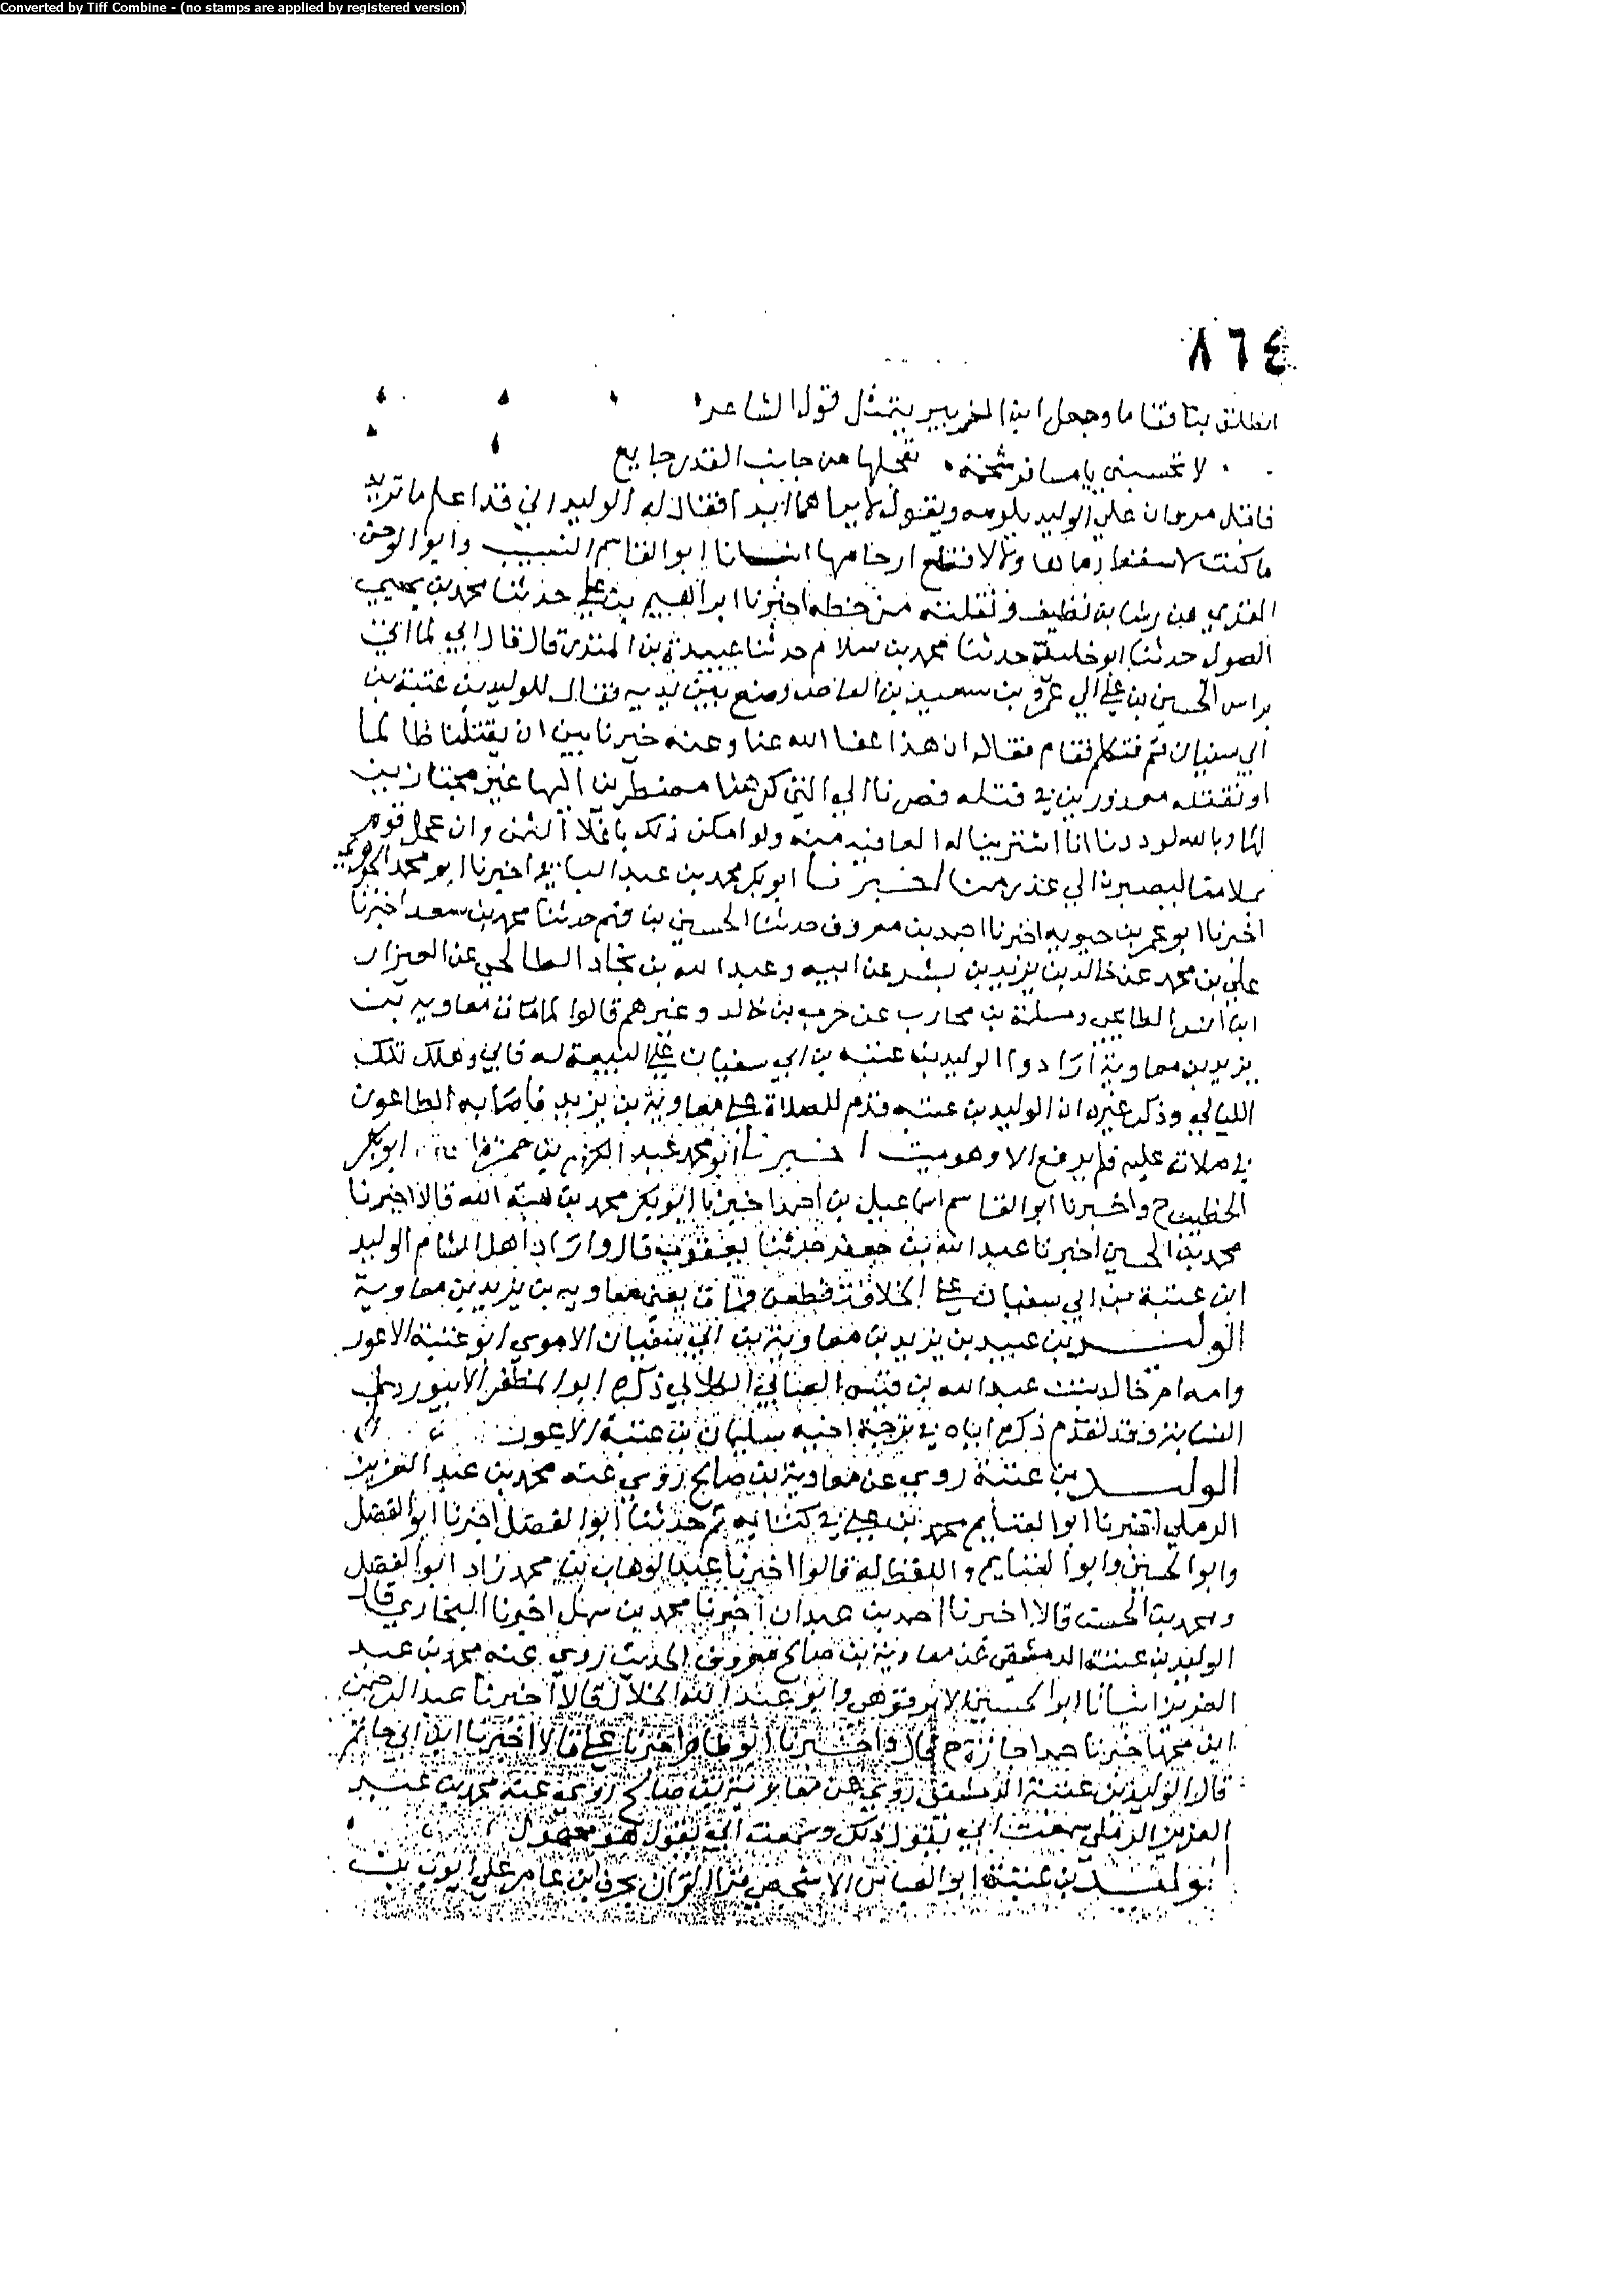 Converted by Tiff Combine - (no stamps are applied by registered version)
٨٦٤
انطلق بنا فقاما وجعل ابن الزبير يتمثل قول الشاعر
لا تحسبني يا مسافر شحمة تعجلها من جانب القدر جايع
فاقبل مروان على الوليد يلومه ويقول لا يراهما ابدا فقال له الوليد اني قد اعلم ما تريد
ما كنت لاسفك دماءهما ولا لاقطع ارحامهما انبانا ابو القاسم النسيب وابو الوحش
المقري عن رشا بن نظيف ونقلته من خطه اخبرنا ابراهيم بن علي حدثنا محمد بن يحيى
الصولي حدثنا ابو خليفة حدثنا محمد بن سلام حدثنا عبيدة بن المنذر قال قال ابي لما اتي
براس الحسين بن علي الى عمرو بن سعيد بن العاص وضع بين يديه فقال للوليد بن عتبة بن
ابي سفيان قم فتكلم فقام فقال ان هذا عفا الله عنا وعنه خيرنا بين ان يقتلنا ظالما
او نقتله معذورين في قتله فصرنا الى التي كرهنا مضطرين اليها غير مختارين
لها وبالله لوددنا انا اشترينا له العافية منه ولو امكن ذلك باغلا الثمن وان عجل قوم
بملامتنا ليصيرن الى عذرنا اخبرنا ابو بكر محمد بن عبد الباقي اخبرنا ابو محمد الجوهري
اخبرنا ابو عمر بن حيويه اخبرنا احمد بن معروف حدثنا الحسين بن فهم حدثنا محمد بن سعد اخبرنا
علي بن محمد عن خالد بن يزيد بن بشر عن ابيه وعبد الله بن نجاد الطالحي عن العيزار
ابن انس الطاحي ومسلمة بن محارب عن حرب بن خالد وغيرهم قالوا لما مات معاوية بن
يزيد بن معاوية ارادوا الوليد بن عتبة بن ابي سفيان على البيعة له فابى وهلك تلك
الليالي وذكر غيره ان الوليد بن عتبة قدم للصلاة على معاوية بن يزيد فاصابه الطاعون
في صلاته عليه فلم يرفع الا وهو ميت اخبرنا ابو محمد عبد الكريم بن حمزة ابو بكر
الخطيب ح واخبرنا ابو القاسم اسماعيل بن احمد اخبرنا ابو بكر محمد بن هبة الله قالا اخبرنا
محمد بن الحسين اخبرنا عبد الله بن جعفر حدثنا يعقوب قال واراد اهل الشام الوليد
ابن عتبة بن ابي سفيان على الخلافة فطعن فمات يعني معاوية بن يزيد بن معاوية
الوليد بن عبيد بن يزيد بن معاوية بن ابي سفيان الاموي ابو عتبة الاعور
وامه ام خالد بنت عبد الله الكلابي ذكره ابو المظفر الابيوردي
النسابة وقد تقدم ذكر اياه في ترجمة اخيه سليمان بن عتبة الاعور
الوليد بن عتبة روى عن معاوية بن صالح روى عنه محمد بن عبد العزيز
الرملي اخبرنا ابو الغنايم محمد بن علي في كتابه ثم حدثنا ابو الفضل اخبرنا ابو الفضل
وابو الحسين وابو الغنايم واللفظ له قالوا اخبرنا عبد الوهاب بن محمد زاد ابو الفضل
ومحمد بن الحسن قالا اخبرنا احمد بن عبدان اخبرنا محمد بن سهل اخبرنا البخاري قال
الوليد بن عتبة الدمشقي عن معاوية بن صالح معروف الحديث روى عنه محمد بن عبد
العزيز انبانا ابو الحسين الابرقوهي وابو عبد الله الخلال قالا اخبرنا عبد الرحمن
ابن محمد اخبرنا حمد اجازة ح قال واخبرنا ابو طاهر اخبرنا علي قالا اخبرنا ابن ابي حاتم
قال الوليد بن عتبة الدمشقي روى عن معاوية بن صالح روى عنه محمد بن عبد
العزيز الرملي سمعت ابي يقول ذلك وسمعت ابي يقول هو مجهول
الوليد بن عتبة ابو العباس الاشجعي قرا القران بحرف ابن عامر على ايوب بن